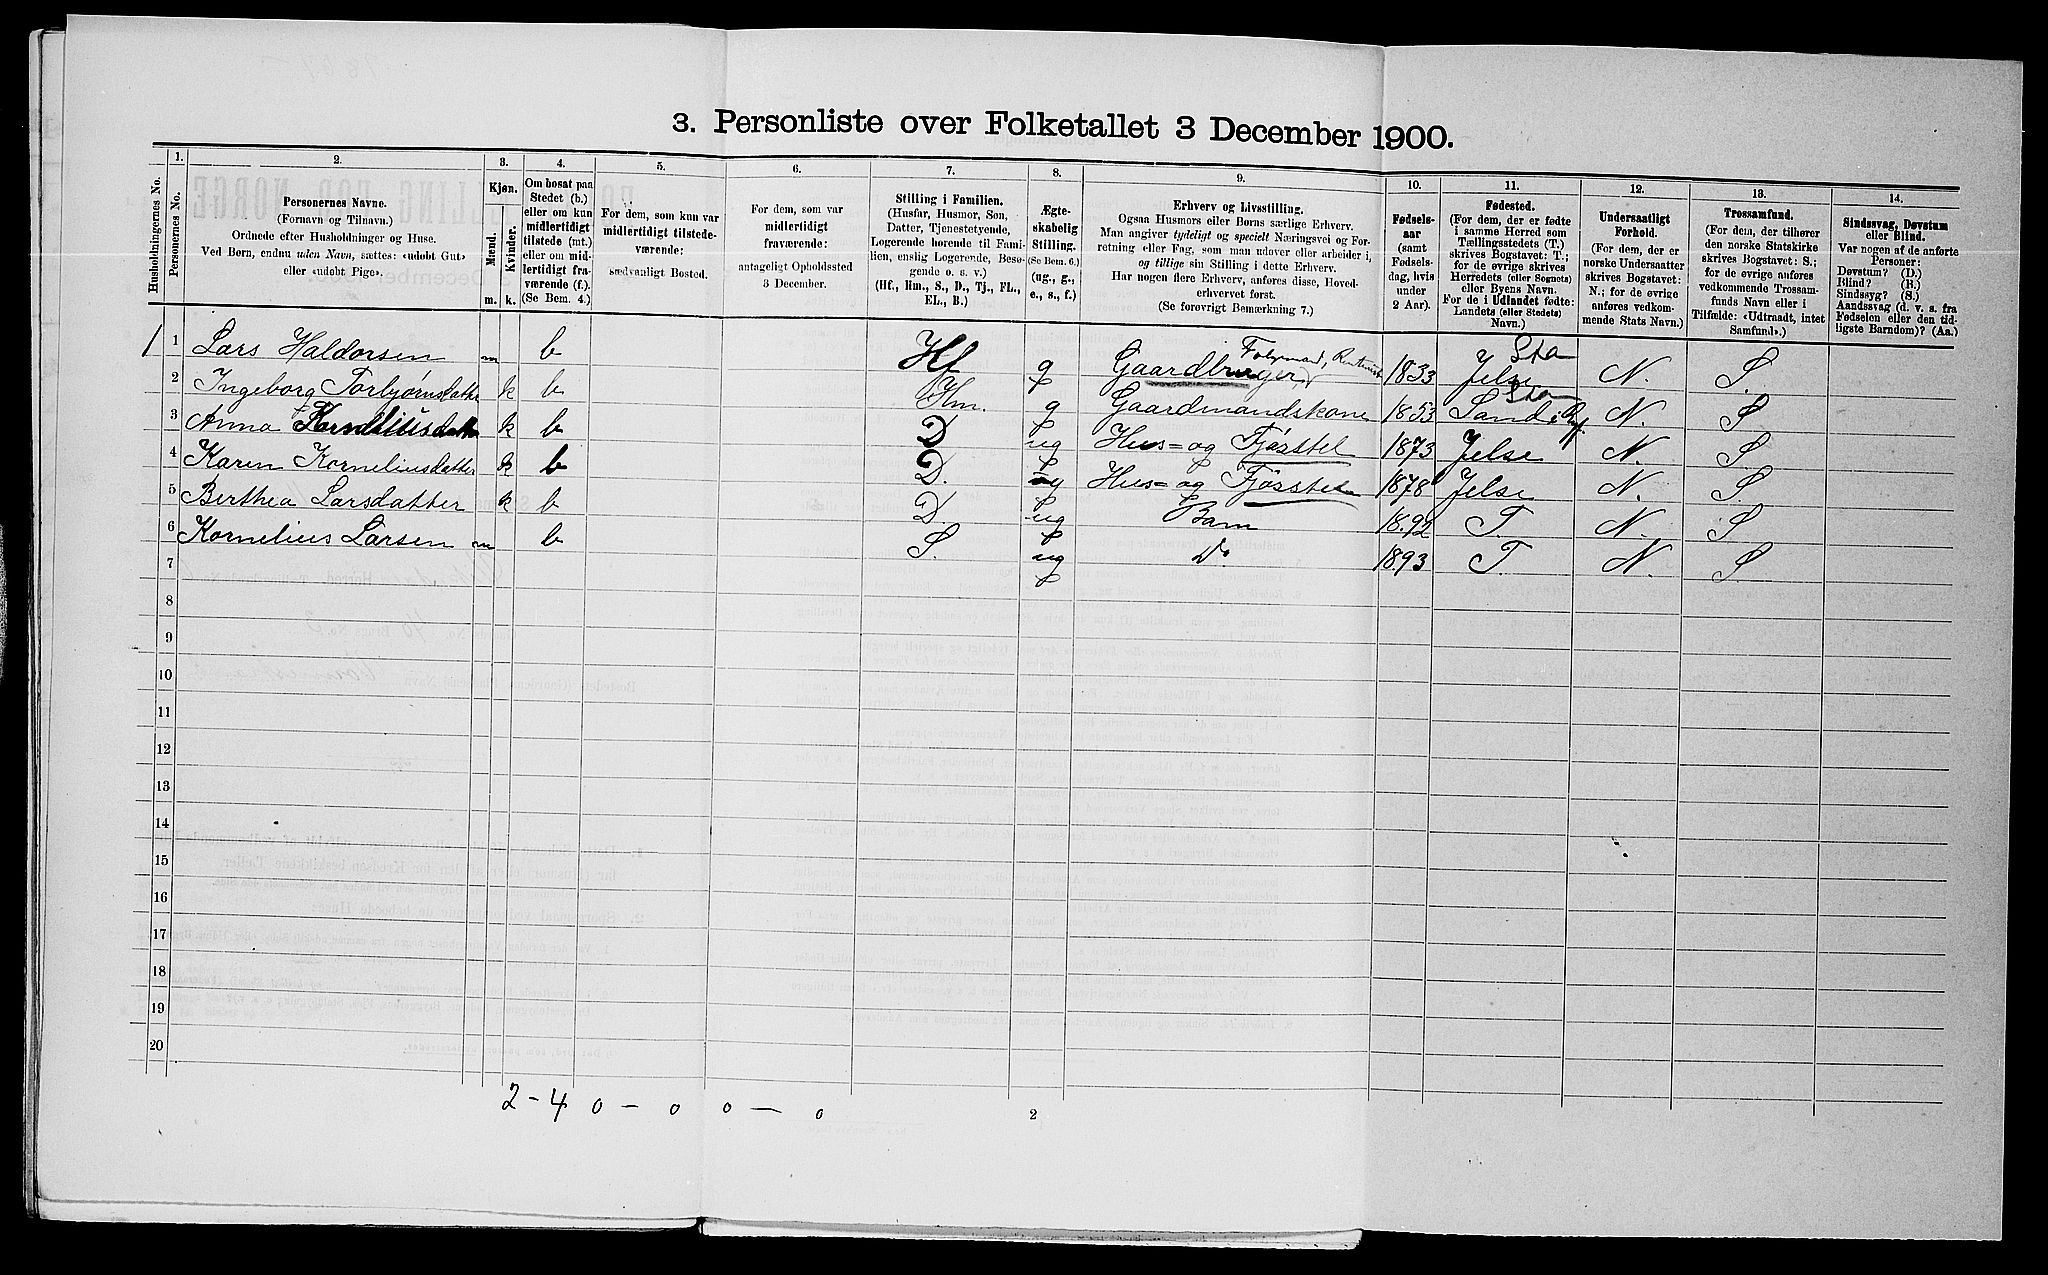 3. Personliste over Folketallet 3 December 1900.
Husholdningernes No.
1. Personernes No.
2. Personernes Navne. (Fornavn og Tilnavn.) Ordnede efter Husholdninger og Huse. Ved Børn, endnu uden Navn, sættes: «udøbt Gut» eller «udøbt Pige».
3. Kjøn. Mænd. Kvinder. m. k.
4. Om bosat paa Stedet (b.) eller om kun midlertidigt tilstede (mt.) eller om midlertidigt fraværende (f.). (Se Bem. 4.)
5. For dem, som kun var midlertidigt tilstedeværende: sædvanligt Bosted.
6. For dem, som var midlertidigt fraværende: antageligt Opholdssted 3 December.
7. Stilling i Familien. (Husfar, Husmor, Søn, Datter, Tjenestetyende, Logerende hørende til Familien, enslig Logerende, Besøgende o. s. v.) (Hf., Hm., S., D., Tj., FL., EL., B.)
8. Ægteskabelig Stilling. (Se Bem. 6.) (ug., g., e., s., f.)
9. Erhverv og Livsstilling. Ogsaa Husmors eller Børns særlige Erhverv. Man angiver tydeligt og specielt Næringsvei og Forretning eller Fag, som man udøver eller arbeider i, og tillige sin Stilling i dette Erhverv. Har nogen flere Erhverv, anføres disse, Hovederhvervet først. (Se forøvrigt Bemærkning 7.)
10. Fødselsaar (samt Fødselsdag, hvis under 2 Aar).
11. Fødested. (For dem, der er fødte i samme Herred som Tællingsstedets (T.) skrives Bogstavet: T.; for de øvrige skrives Herredets (eller Sognets) eller Byens Navn. For de i Udlandet fødte: Landets (eller Stedets) Navn.)
12. Undersaatligt Forhold. (For dem, der er norske Undersaatter skrives Bogstavet: N.; for de øvrige anføres vedkommende Stats Navn.)
13. Trossamfund. (For dem, der tilhører den norske Statskirke skrives Bogstavet: S.; for de øvrige anføres vedkommende Trossamfunds Navn eller i Tilfælde: «Udtraadt, intet Samfund».)
14. Sindssvag, Døvstum eller Blind. Var nogen af de anførte Personer: Døvstum? (D.) Blind? (B.) Sindssyg? (S.) Aandssvag (d. v. s. fra Fødselen eller den tidligste Barndom)? (Aa.)
Sta
1 1 Lars Haldorsen m b Hf g Gaardbruger, 1833 Jelse N. S.
Sta
2 Ingeborg Torbjørnsdatter k b Hm. g Gaardmandskone 1853 Sand i Ryf. N. S
3 Anna Korneliusdatter k b D ug Hus= og Fjøsstel 1873 Jelse N. S.
4 Karen Korneliusdatter k b D. ug Hus= og Fjøsstel 1878 Jelse N. S.
5 Berthea Larsdatter k b D. ug Barn 1892 T. N. S
6 Kornelius Larsen m b S. ug Do 1893 T. N. S
7
8
9
10
11
12
13
14
15
16
17
18
19
20
2 - 4 0 - 0 0 - 0
2